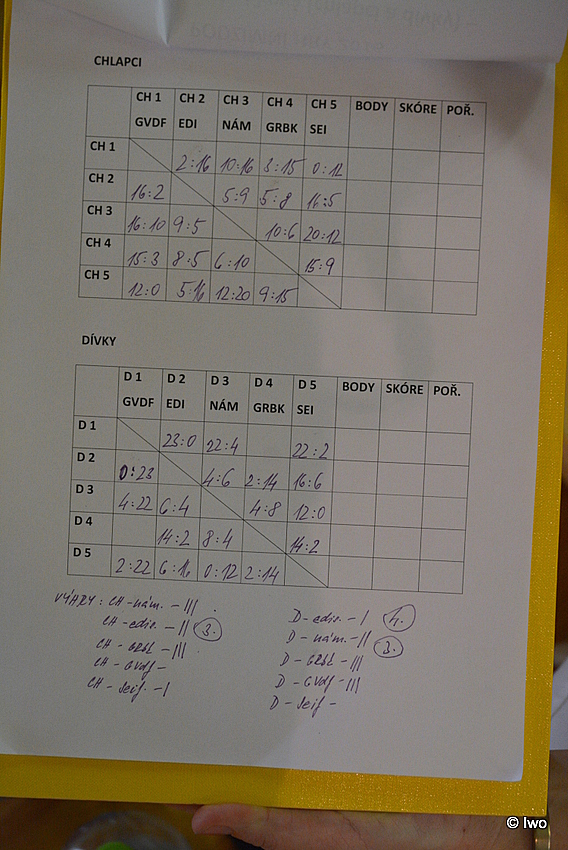 CHLAPCI
CH 1 CH 2 CH 3 CH 4 CH 5 BODY SKÓRE POŘ.
GVDF EDI NÁM GRBK SEI
CH 1 2:16 10:16 3:15 0:12
CH 2 16:2 5:9 5:8 16:5
CH 3 16:10 9:5 10:6 20:12
CH 4 15:3 8:5 6:10 15:9
CH 5 12:0 5:16 12:20 9:15
DÍVKY
D 1 D 2 D 3 D 4 D 5 BODY SKÓRE POŘ.
GVDF EDI NÁM GRBK SEI
D 1 23:0 22:4 22:2
D 2 0:23 4:6 2:14 16:6
D 3 4:22 6:4 4:8 12:0
D 4 14:2 8:4 14:2
D 5 2:22 6:16 0:12 2:14
VÝHRY: CH - nám. - III
CH - edis. - II 3.
CH - GRbk - III
CH - GVdf -
CH - Seif. - I
D - edis. - I 4.
D - nám. - II 3.
D - GRbk - III
D - GVdf - III
D - Seif -
© Iwo